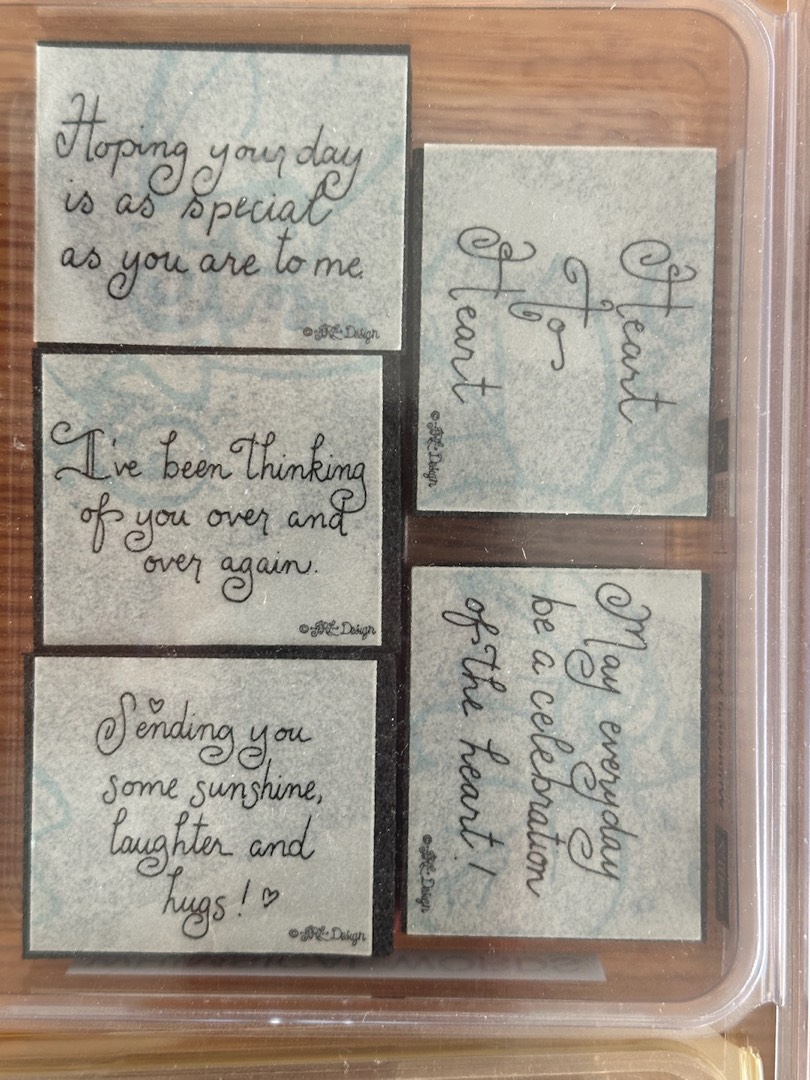 Hoping your day
is as special
as you are to me.
I've been thinking
of you over and
over again.
Sending you
some sunshine,
laughter and
hugs!
Heart
To
Heart
May everyday
be a celebration
of the heart!
© Design
© Design
© Design
© Design
© Design